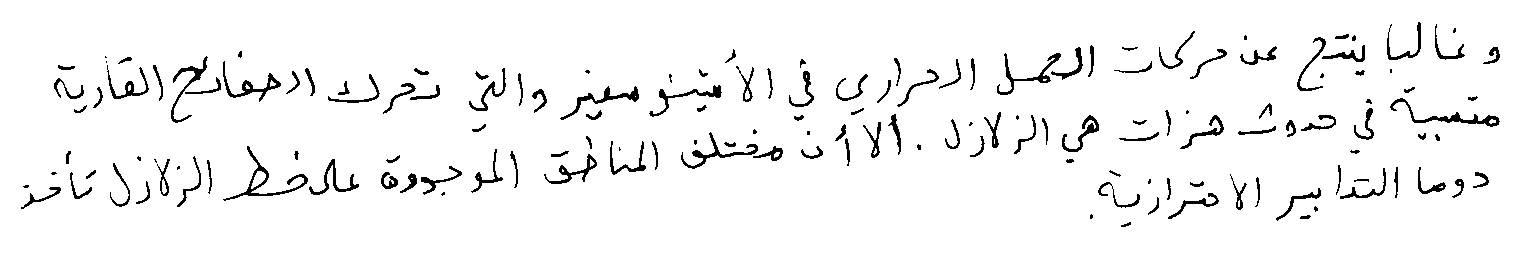 وغالبا ينتج عن حركات الحمل الحراري في الأتينوسفير والتي تحرك الصفائح القارية
متسببة في حدوث هزات هي الزلازل . ألا أن مختلف المناطق الموجودة على خط الزلازل تأخذ
دوما التدابير الاحترازية.